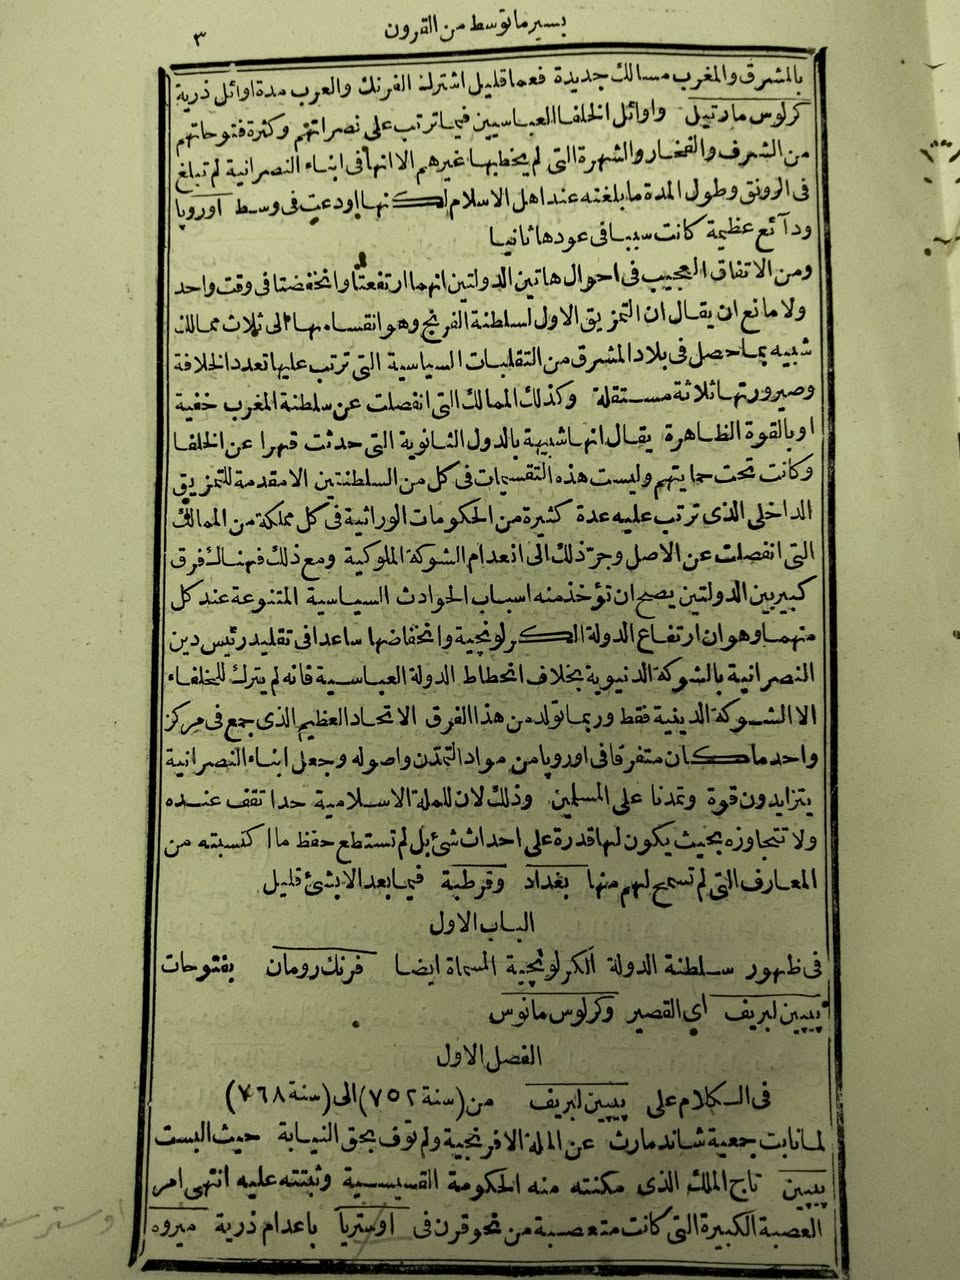 بسير ما توسط من القرون ٣
بالمشرق والمغرب مسالك جديدة فعما قليل اشترك الفرنك والعرب مدة اوائل ذرية
كرلوس مارتيل واوائل الخلفا العباسيين فيما ترتب على نصراتهم وكثرة فتوحاتهم
من الشرف والفخار والشهرة التى لم يخطبها غيرهم الا انها فى ابناء النصرانية لم تبلغ
فى الرونق وطول المدة ما بلغته عند اهل الاسلام لكنها اودعت فى وسط اوروپا
ودآئع عظيمة كانت سببا فى عودها ثانيا
ومن الاتفاق العجيب فى احوال هاتين الدولتين انهما ارتفعتا وانخفضتا فى وقت واحد
ولا مانع ان يقال ان التمزيق الاول لسلطنة الفرنج وهو انقسامها الى ثلاث ممالك
شبيه بما حصل فى بلاد المشرق من التقلبات السياسية التى ترتب عليها تعدد الخلافة
وصيرورتها ثلاثة مستقلة وكذلك الممالك التى انفصلت عن سلطنة المغرب خفية
او بالقوة الظاهرة يقال انها شبيهة بالدول الثانوية التى حدثت قهرا عن الخلفا
وكانت تحت حمايتهم وليست هذه التقسيمات فى كل من السلطنتين الا مقدمة للتمزيق
الداخلى الذى ترتب عليه عدة كثيرة من الحكومات الوراثية فى كل مملكة من الممالك
التى انفصلت عن الاصل وجر ذلك الى انعدام الشوكة الملوكية ومع ذلك فهناك فرق
كبير بين الدولتين يصح ان تؤخذ منه اسباب الحوادث السياسية المتنوعة عند كل
منهما وهو ان ارتفاع الدولة الكرلونجية وانخفاضها ساعدا فى تقليد رئيس دين
النصرانية بالشوكة الدنيوية بخلاف انحطاط الدولة العباسية فانه لم يترك للخلفاء
الا الشوكة الدينية فقط وربما تولد من هذا الفرق الاتحاد العظيم الذى جمع فى مركز
واحد ما كان متفرقا فى اوروپا من مواد التمدن واصوله وجعل ابناء النصرانية
يتزايدون قوة وتمدنا على المسلمين وذلك لان للملة الاسلامية حدا تقف عنده
ولا تتجاوزه بحيث يكون لها قدرة على احداث شئ بل لم تستطع حفظ ما اكتسبته من
المعارف التى لم تسمح لهم منها بغداد وقرطبة فيما بعد الا بشئ قليل
الباب الاول
فى ظهور سلطنة الدولة الكرلونجية المسماة ايضا فرنك رومان بفتوحات
پپين لبريف اي القصير وكرلوس مانوس
الفصل الاول
فى الكلام على پپين لبريف من (سنة ٧٥٢) الى (سنة ٧٦٨)
لما نابت جمعية شاند مارث عن الملة الافرنجية ولم توف بحق النيابة حيث البست
پپين تاج الملك الذى مكنته منه الحكومة القسيسية وثبتته عليه انتهى امر
العصبة الكبيرة التى كانت متعصبة من نحو قرن فى اوستريا باعدام ذرية ميروه